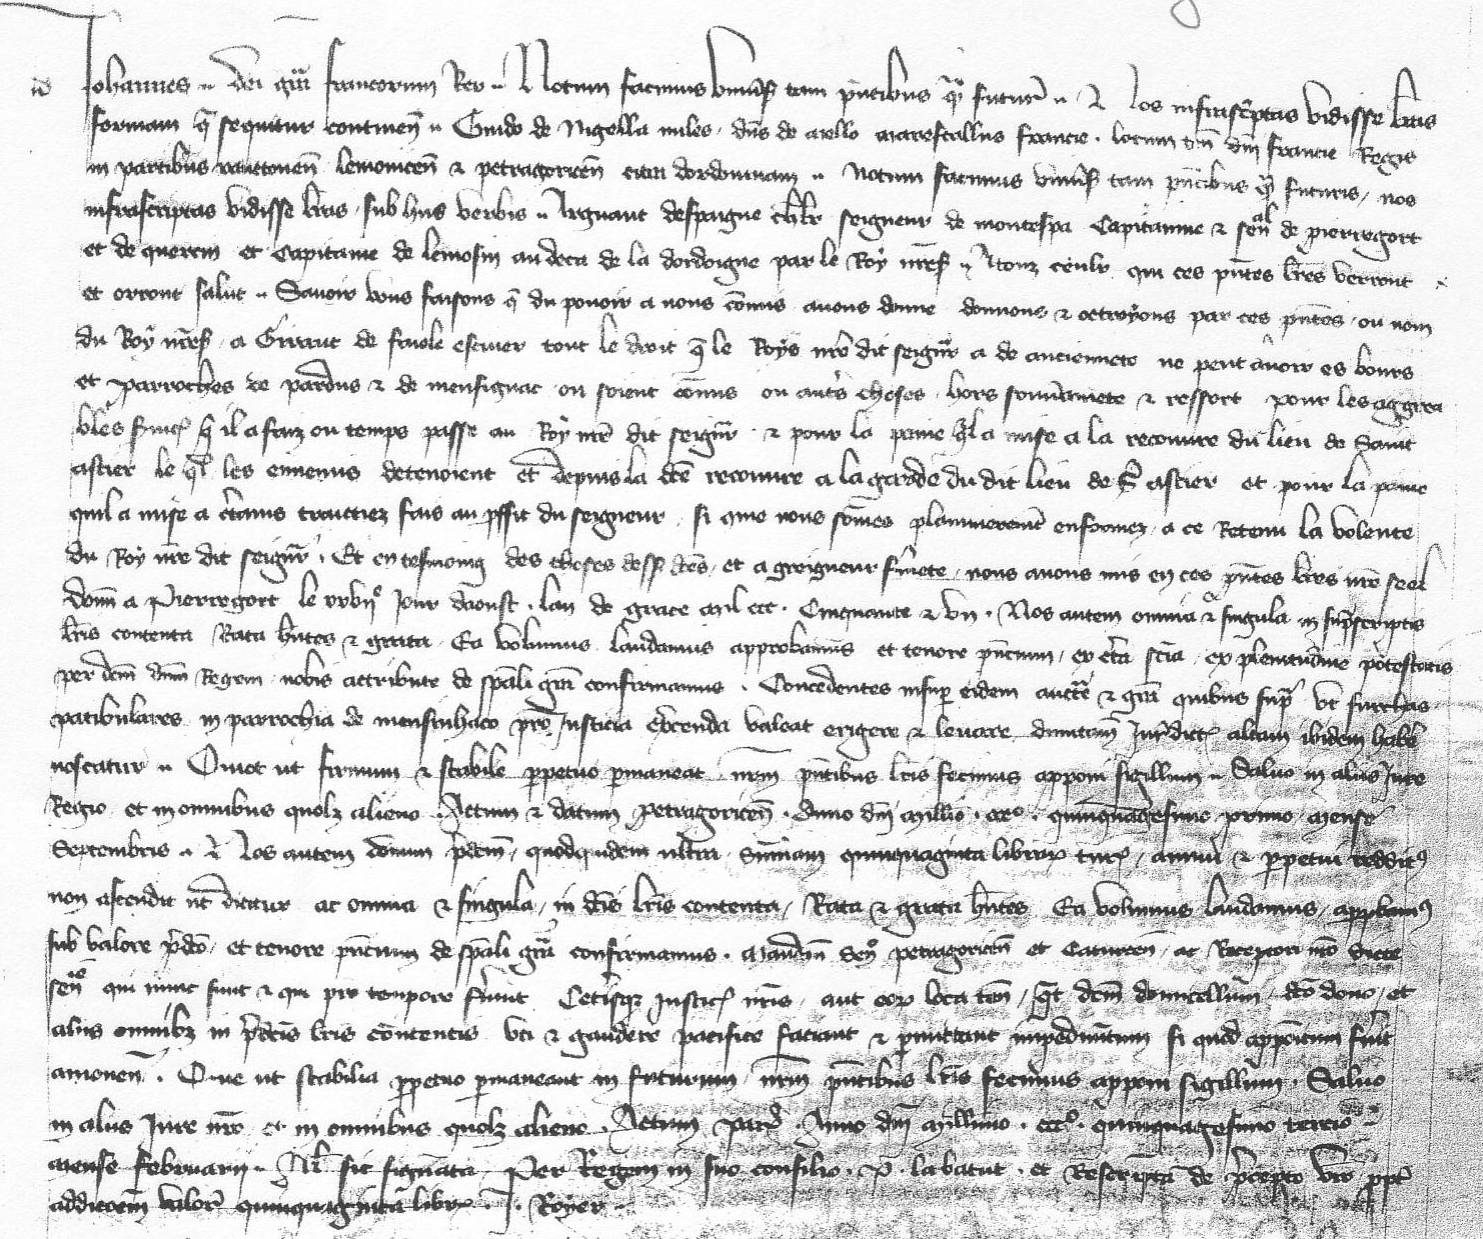 Johannes dei gra francorum Rex Notum facimus univs tam pntibus qm futur Nos infrascptas vidisse lras
formam q sequitur continen Guido de Nigella miles dns de mello marescallus francie locum tn dni francie Regis
in partibus xanctonen lemovicen & petragoricen citra dordoniam Notum facimus univs tam pntibus qm futuris nos
infrascriptas vidisse lras sub hiis verbis Arnaut despaigne chlr seigneur de montespa Capitaine & senal de pierregort
et de quercin et Capitaine de lemosin au deca de la dordoigne par le Roy nres A touz ceulx qui ces pntes lres verront
et orront salut Savoir vous faisons q du povoir a nous comis avons donne donnons & octroyons par ces pntes ou nom
du Roy nres a Giraut de fraole escuier tout le droit q le Roys nre dit seignr a de anciennete ne peut avoir es bours
et parroches de pardus & de mensignac ou soient comis ou autrs choses hors souvainete & ressort pour les aggrea
bles svices q il a faiz ou temps passe au Roy nre dit seignr & pour la paine ql a mise a la recouvre du lieu de Saint
astier le ql les ennemis detenoient et depuis la dce recouvre a la garde du dit lieu de St astier et pour la paine
quil a mise a ctains traittiez fais au pffit du seigneur si que nous somes plainnerement enformez a ce Retenu la volente
du Roy nre dit seignr Et en tesmoing des choses dess dces et a greigneur fmete nous avons mis en ces pntes lres nre seel
donn a Pierregort le xxviio Jour daoust lan de grace mil ccc Cinquante & un Nos autem omnia & singula in supscriptis
lris contenta Rata hntes & grata Ea volumus laudamus approbamus et tenore pncium ex certa scia ex plenitudine potestatis
per dcm dnm Regem nobis attribute de spali gra confirmamus Concedentes insup eidem auctte & gra quibus sup ut furchas
patibulares in parrochia de mensinhaco pro Justicia exercenda valeat erigere & levare dumtam Juridict altam ibidem habe
noscatur Quot ut firmum & stabile ppetuo pmaneat nrm pntibus lris fecimus apponi sigillum Salvo in aliis Jure
Regio et in omnibus quolz alieno Actum & datum petragoricen Anno dni millo ccco quinquagesimo primo mense
Septembris Nos autem donum pdcm quodquidem ultra summam quinquaginta librar tur annui & ppetui redditus
non ascendit ut dicitur ac omnia & singula in dcis lris contenta Rata & grata hntes Ea volumus laudamus appbamus
sub valore pdco et tenore pncium de spali gra confirmamus Mandan sen petragoricen et Caturcen ac Receptori nro dicte
sen qui nunc sunt & qui pro tempore fuint Cetisque Justic nris aut eor loca ten qt dcm domicellum dco dono et
aliis omnibz in pdcis lris contentis uti & gaudere pacifice faciant & pmittant impedimtum si quod appoitum fuit
amoven Que ut stabilia ppetuo pmaneant in futurum nrm pntibus lris fecimus apponi sigillum Salvo
in aliis Jure nro et in omnibus quolz alieno Actum Paris Anno dni millimo ccco quinquagesimo tercio
mense februarii sic signata Per Regem in suo consilio P. labatut et Rescripta de pcepto vro ppt
addicoem valor quinquaginta libr J. Royer